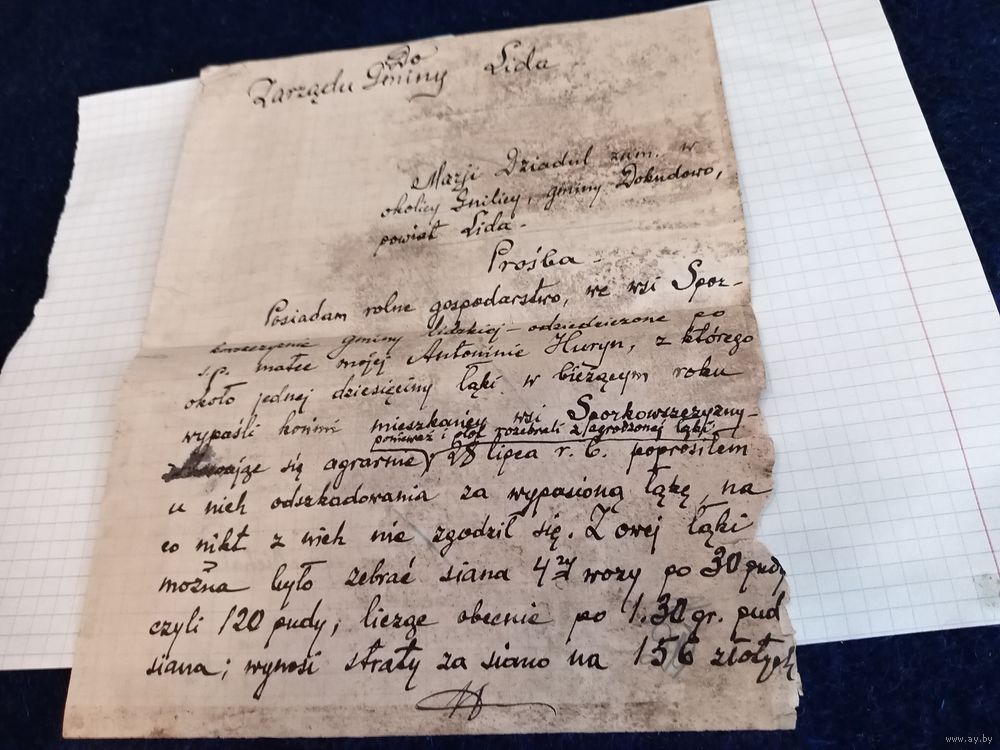 Do
Zarządu Gminy Lida
Marji Dziadul zam. w
okolicy Gnilicy, gminy Dokudowo,
powiat Lida.
Prośba
Posiadam rolne gospodarstwo, we wsi Spor-
gminy lidzkiej - odziedziczone po
ś.p. matce mojej Antoninie Huryn, z którego
około jednej dziesięciny łąki w bieżącym roku
wypaśli końmi mieszkańcy wsi Sporkowszczyzny-
ponieważ i płot rozebrali zagrodzonej łąki
się agrarnie 28 lipca r. b. poprosiłem
u nich odszkadowania za wypasioną łąkę, na
co nikt z nich nie zgodził się. Z owej łąki
można było zebrać siana 4ry wozy po 30 pudy
czyli 120 pudy, licząc obecnie po 1.30 gr. pud
siana; wynosi straty za siano na 156 złotych
www.ay.by